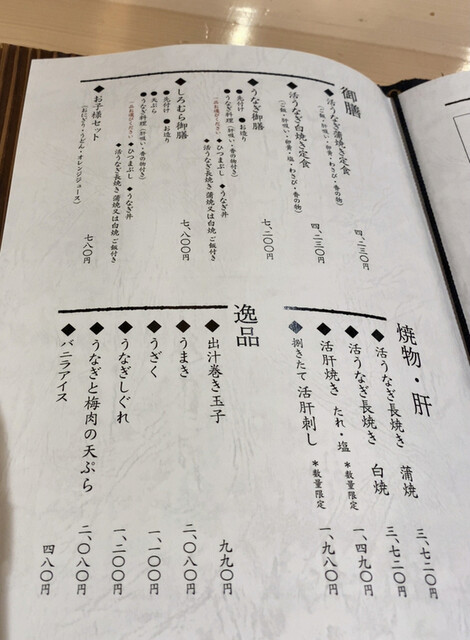 御膳
◆活うなぎ蒲焼き定食
(ご飯・肝吸い・卵黄・わさび・香の物)
四、二三〇円
◆活うなぎ白焼き定食
(ご飯・肝吸い・卵黄・塩・わさび・香の物)
四、二三〇円
◆うなぎ御膳
●先付け ●お造り
●うなぎ料理(肝吸い・香の物付き)
◆ひつまぶし ◆うなぎ丼
◆活うなぎ長焼き 蒲焼又は白焼 ご飯付き
七、二〇〇円
◆しろむら御膳
●先付け ●お造り
●天ぷら
●うなぎ料理(肝吸い・香の物付き)
◆ひつまぶし ◆うなぎ丼
◆活うなぎ長焼き 蒲焼又は白焼 ご飯付き
七、八〇〇円
◆お子様セット
(おにぎり・うどん・オレンジジュース)
七八〇円
焼物・肝
◆活うなぎ長焼き 蒲焼
三、七二〇円
◆活うなぎ長焼き 白焼
三、七二〇円
◆活肝焼き たれ・塩 *数量限定
一、四九〇円
捌きたて活肝刺し *数量限定
一、九八〇円
逸品
◆出汁巻き玉子
九九〇円
◆うまき
二、〇八〇円
◆うざく
一、一〇〇円
◆うなぎしぐれ
一、二〇〇円
◆うなぎと梅肉の天ぷら
二、〇八〇円
◆バニラアイス
四八〇円